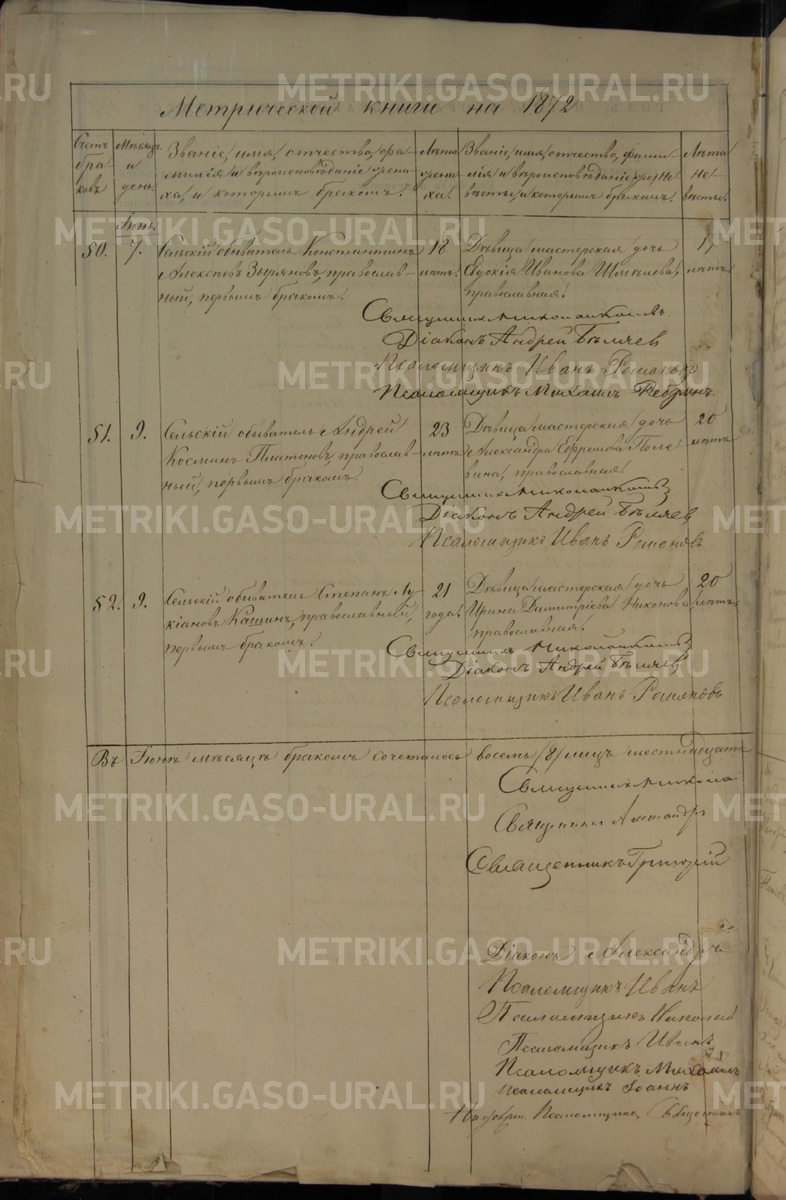 Метрической книги на 1872
Счетъ браковъ.
Мѣсяцъ и день.
Званіе, имя, отчество, фамилія и вѣроисповѣданіе жениха, и которымъ бракомъ.
Лѣта жениха.
Званіе, имя, отчество, фамилія и вѣроисповѣданіе невѣсты, и которымъ бракомъ.
Лѣта невѣсты.
Іюнь.
50. 7. Сельскій обыватель Константинъ 18 Дѣвица мастерская дочь 17
Алексѣевъ Зыряновъ, православ- лѣтъ. Евдокія Иванова лѣтъ
ный, первымъ бракомъ. православная.
Священникъ Николай
Діаконъ Андрей Бѣляев
Псаломщикъ Иванъ Романовъ
Псаломщикъ Михаилъ Ребринъ
51. 9. Сельскій обыватель Андрей 23 Дѣвица мастерская дочь 20
Косминъ Платоновъ, православ- лѣтъ Александра Ефремова Поле- лѣтъ
ный, первымъ бракомъ. вина, православная.
Священникъ Николай
Діаконъ Андрей Бѣляев
Псаломщикъ Иванъ Романовъ
52. 9. Сельскій обыватель Степанъ Лу- 21 Дѣвица мастерская дочь 20
кіановъ Кашинъ, православный, года. Ирина Димитріева Никонова лѣтъ
первымъ бракомъ. православная.
Священникъ Николай
Діаконъ Андрей Бѣляев
Псаломщикъ Иванъ Романовъ
Въ Іюнѣ мѣсяцѣ бракомъ сочеталось восемь /8/ лицъ шестнадцать
Священникъ Николай
Священникъ Александръ
Священникъ Григорій
Діаконъ Александръ
Псаломщикъ Иванъ
Псаломщикъ Николай
Псаломщикъ Иванъ
Псаломщикъ Михаилъ
Псаломщикъ Іоаннъ
Псаломщика, Священникъ
METRIKI.GASO-URAL.RU